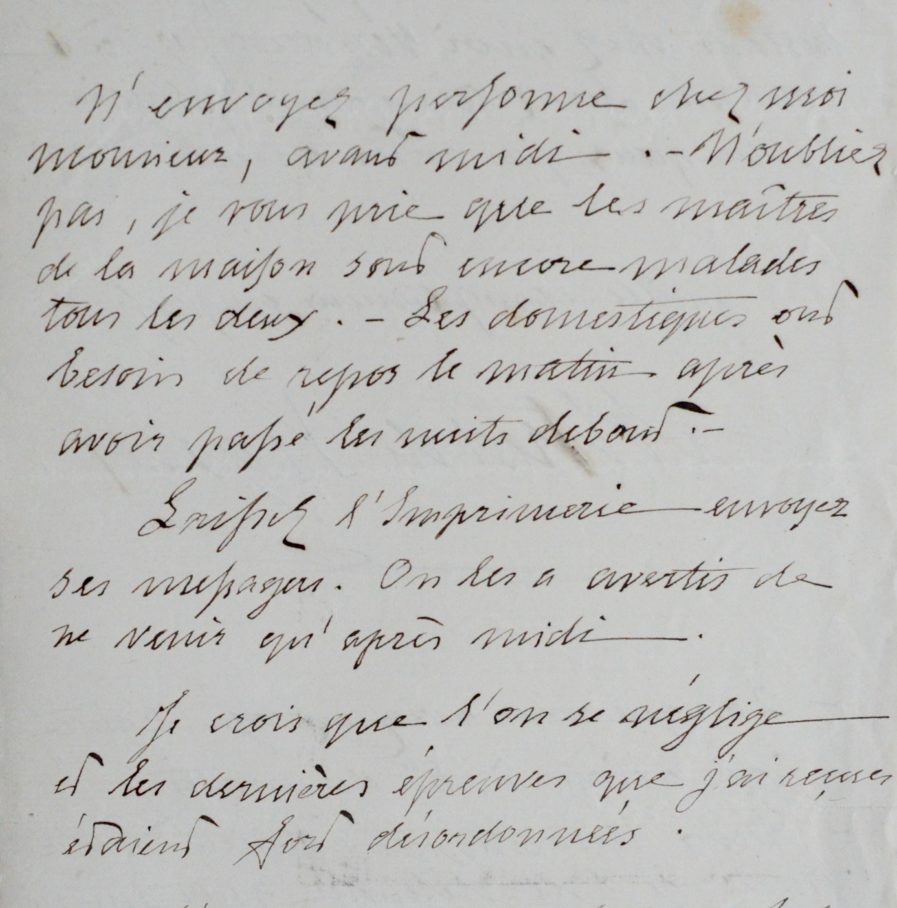 N'envoyez personne chez moi
monsieur, avant midi. - N'oubliez
pas, je vous prie que les maîtres
de la maison sont encore malades
tous les deux. - Les domestiques ont
besoin de repos le matin après
avoir passé les nuits debout. -
Laissez l'Imprimerie envoyer
ses messagers. On les a avertis de
ne venir qu'après midi.
Je crois que l'on se néglige
et les dernières épreuves que j'ai reçues
étaient fort désordonnées.